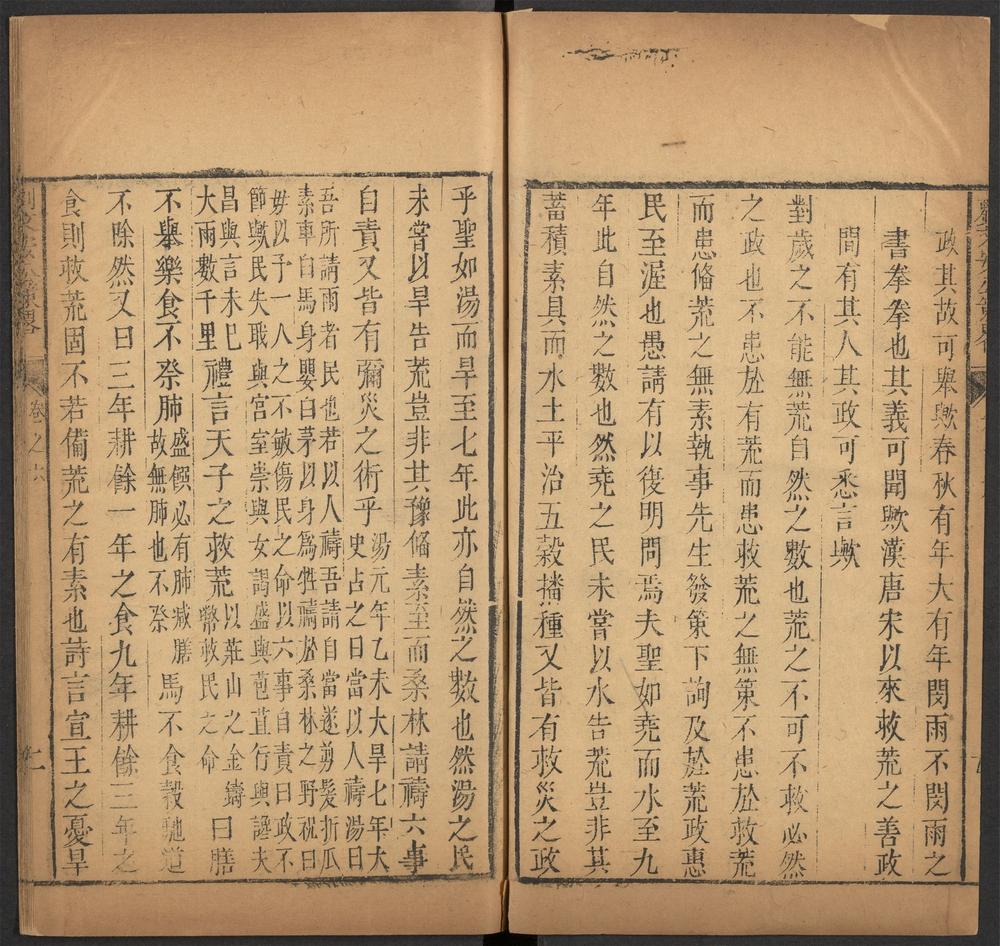 政其故可㮣歟春秋有年大有年閔雨不閔雨之
書拳拳也其義可聞歟漢唐宋以來救荒之善政
間有其人其政可悉言歟
對歲之不能無荒自然之數也荒之不可不救必然
之政也不患於有荒而患救荒之無策不患於救荒
而患俻荒之無素執事先生發策下詢及於荒政惠
民至渥也愚請有以復明問焉夫聖如堯而水至九
年此自然之數也然堯之民未嘗以水告荒豈非其
蓄積素具而水土平治五榖播種又皆有救災之政
乎聖如湯而旱至七年此亦自然之數也然湯之民
未嘗以旱告荒豈非其豫俻素至而桑林請禱六事
自責又皆有彌災之術乎湯元年乙未大旱七年大
史占之曰當以人禱湯曰
吾所請雨者民也若以人禱吾請自當遂剪髮折瓜
素車白馬身嬰白茅以身爲牲禱於桑林之野祝曰
毋以予一人之不敏傷民之命以六事自責曰政不
節歟民失職與宮室崇與女謁盛與苞苴行與讒夫
昌與言未已
大雨數千里禮言天子之救荒以莊山之金鑄
幣救民之命曰膳
不舉樂食不祭肺盛饌必有肺减膳
故無肺也不祭馬不食榖馳道
不除然又曰三年耕餘一年之食九年耕餘三年之
食則救荒固不若備荒之有素也詩言宣王之憂旱
卷之六